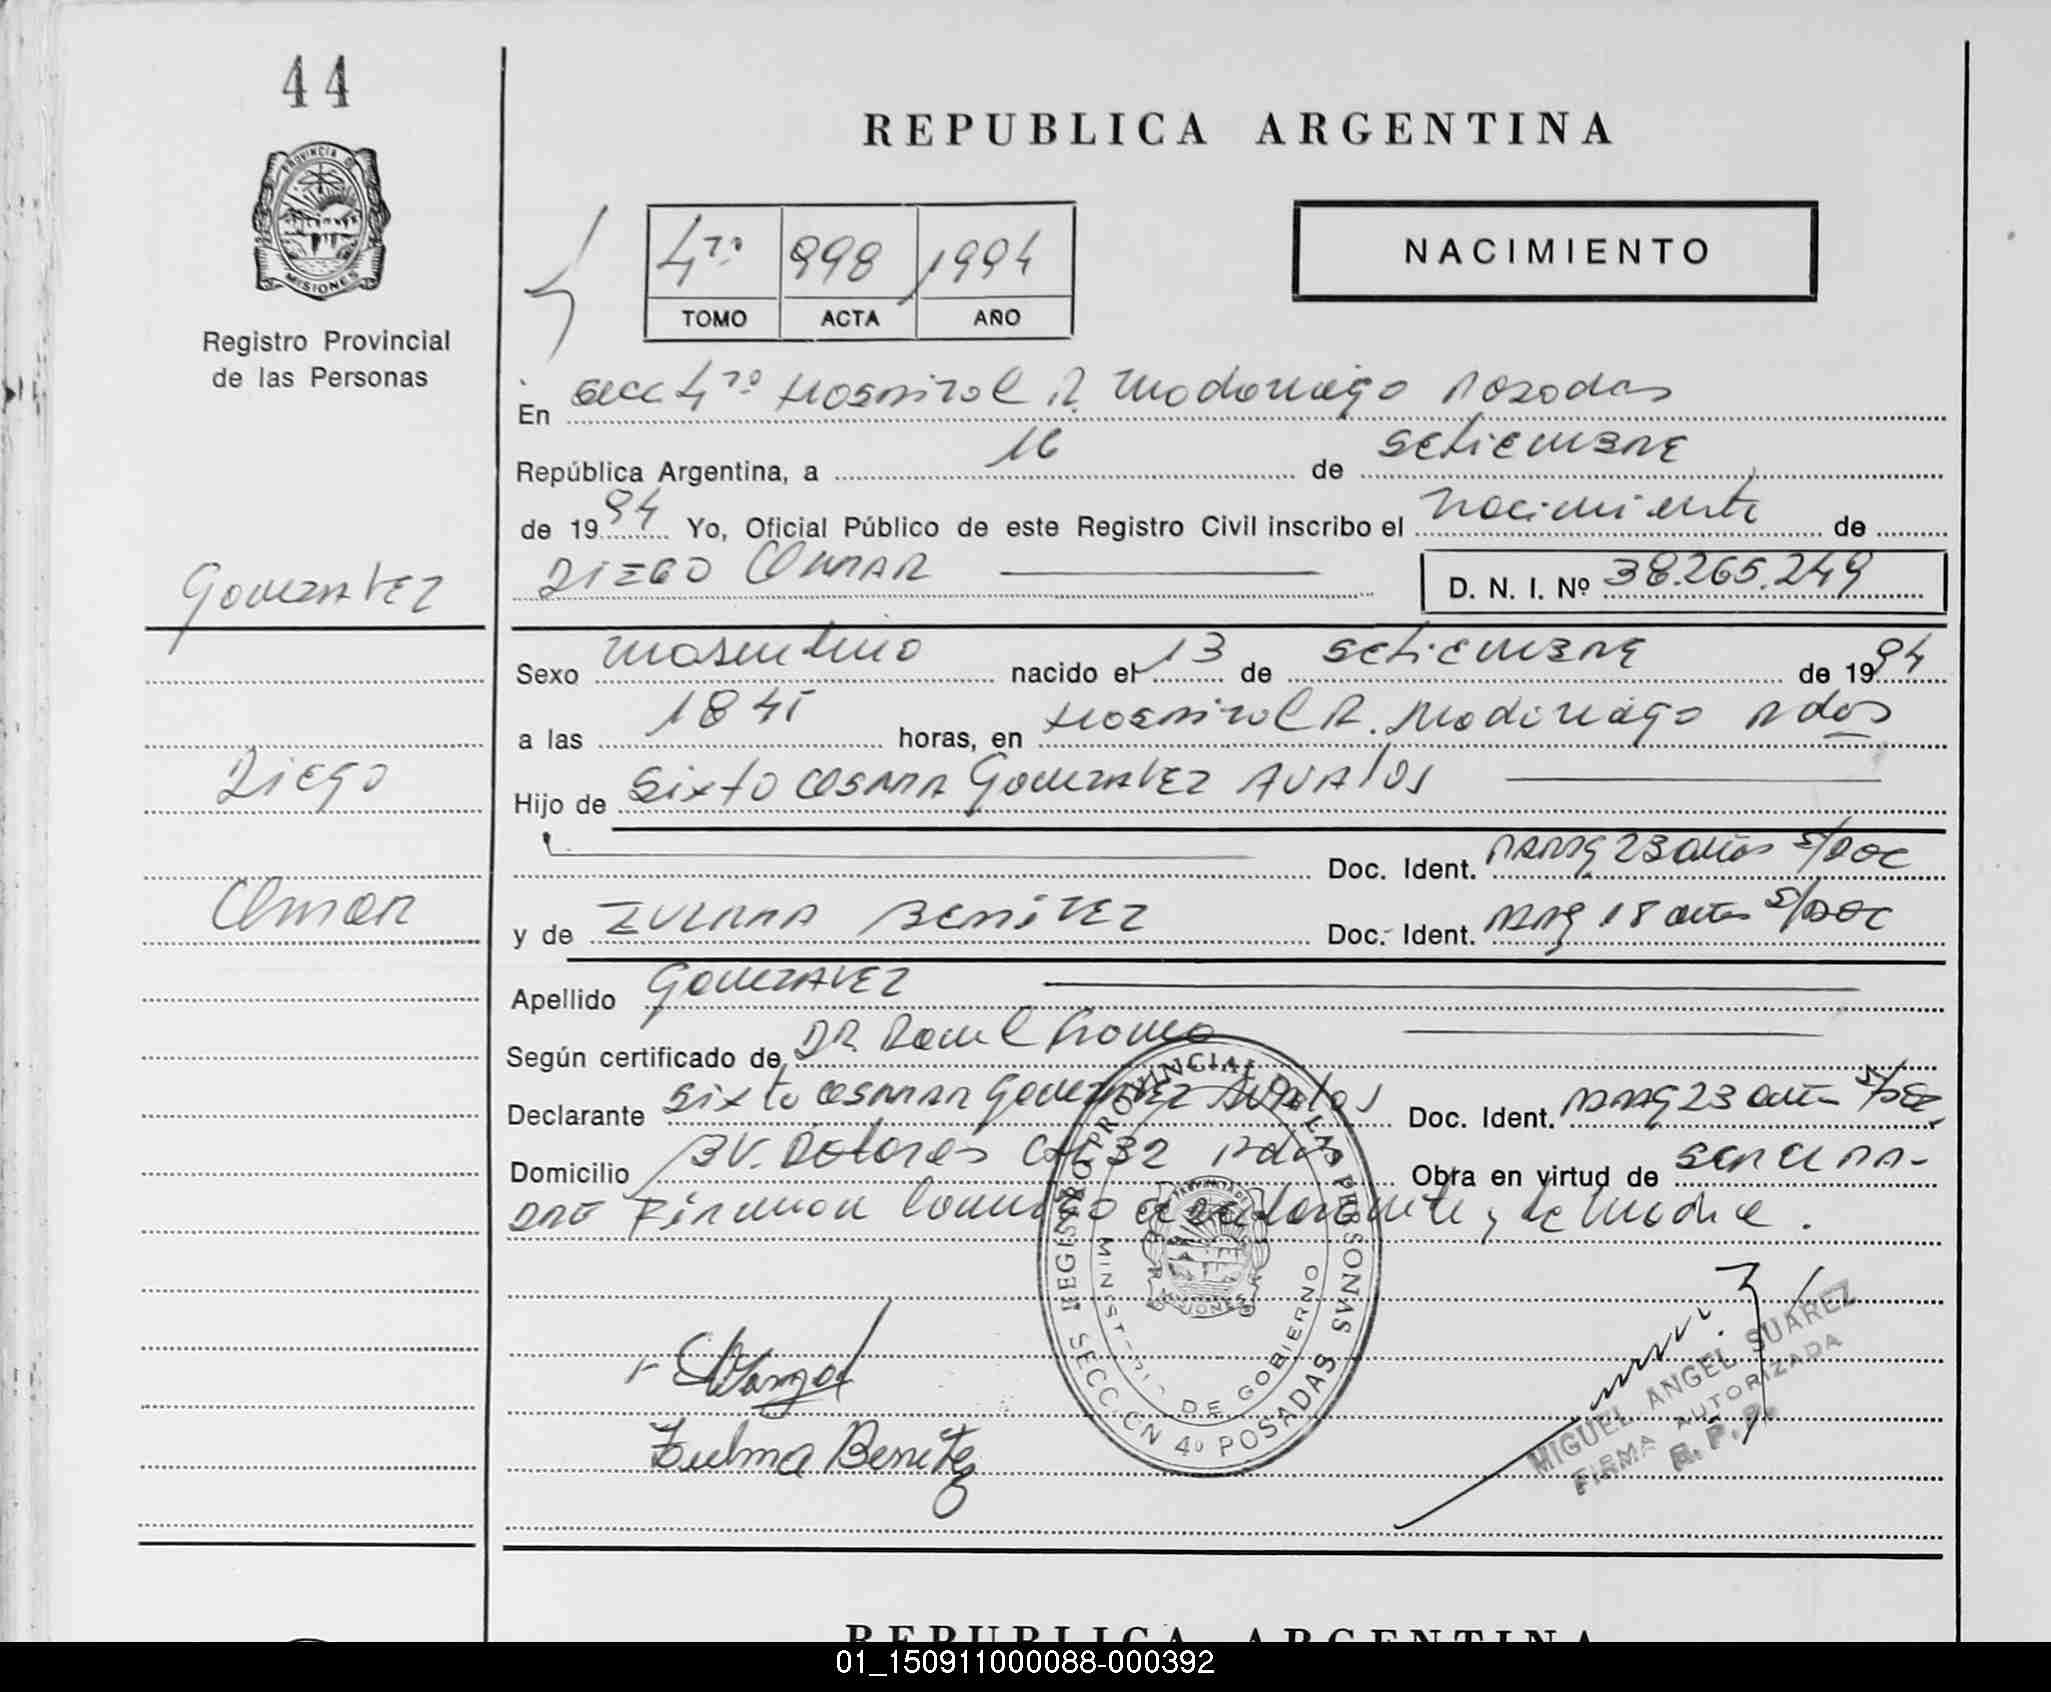 44
PROVINCIA DE
MISIONES
Registro Provincial
de las Personas
REPUBLICA ARGENTINA
4to 998 1994
TOMO ACTA AÑO
NACIMIENTO
En Secc 4ta Hospital R. Madariaga Posadas
República Argentina, a 16 de Setiembre
de 1994 Yo, Oficial Público de este Registro Civil inscribo el Nacimiento de
Gonzalez
DIEGO OMAR D. N. I. Nº 38.265.249
Sexo Masculino nacido el 13 de Setiembre de 1994
a las 1845 horas, en Hospital R. Madariaga Pdas
Diego
Hijo de Sixto Gonzalez Avalos
Doc. Ident. 23 años s/Doc
Omar
y de Zulma Benitez Doc. Ident. 18 años s/Doc
Apellido Gonzalez
Según certificado de DR. Raul
Declarante Sixto Gonzalez Avalos Doc. Ident. 23 años s/Doc
Domicilio BV. Dolores 32 Pdas Obra en virtud de ser el pa-
dre Firman conmigo el declarante, y la madre.
REGISTRO PROVINCIAL DE LAS PERSONAS
MINISTERIO DE GOBIERNO
SECCCN 4º POSADAS
Zulma Benitez
MIGUEL ANGEL SUAREZ
FIRMA AUTORIZADA
R. P. P.
REPUBLICA ARGENTINA
01_150911000088-000392